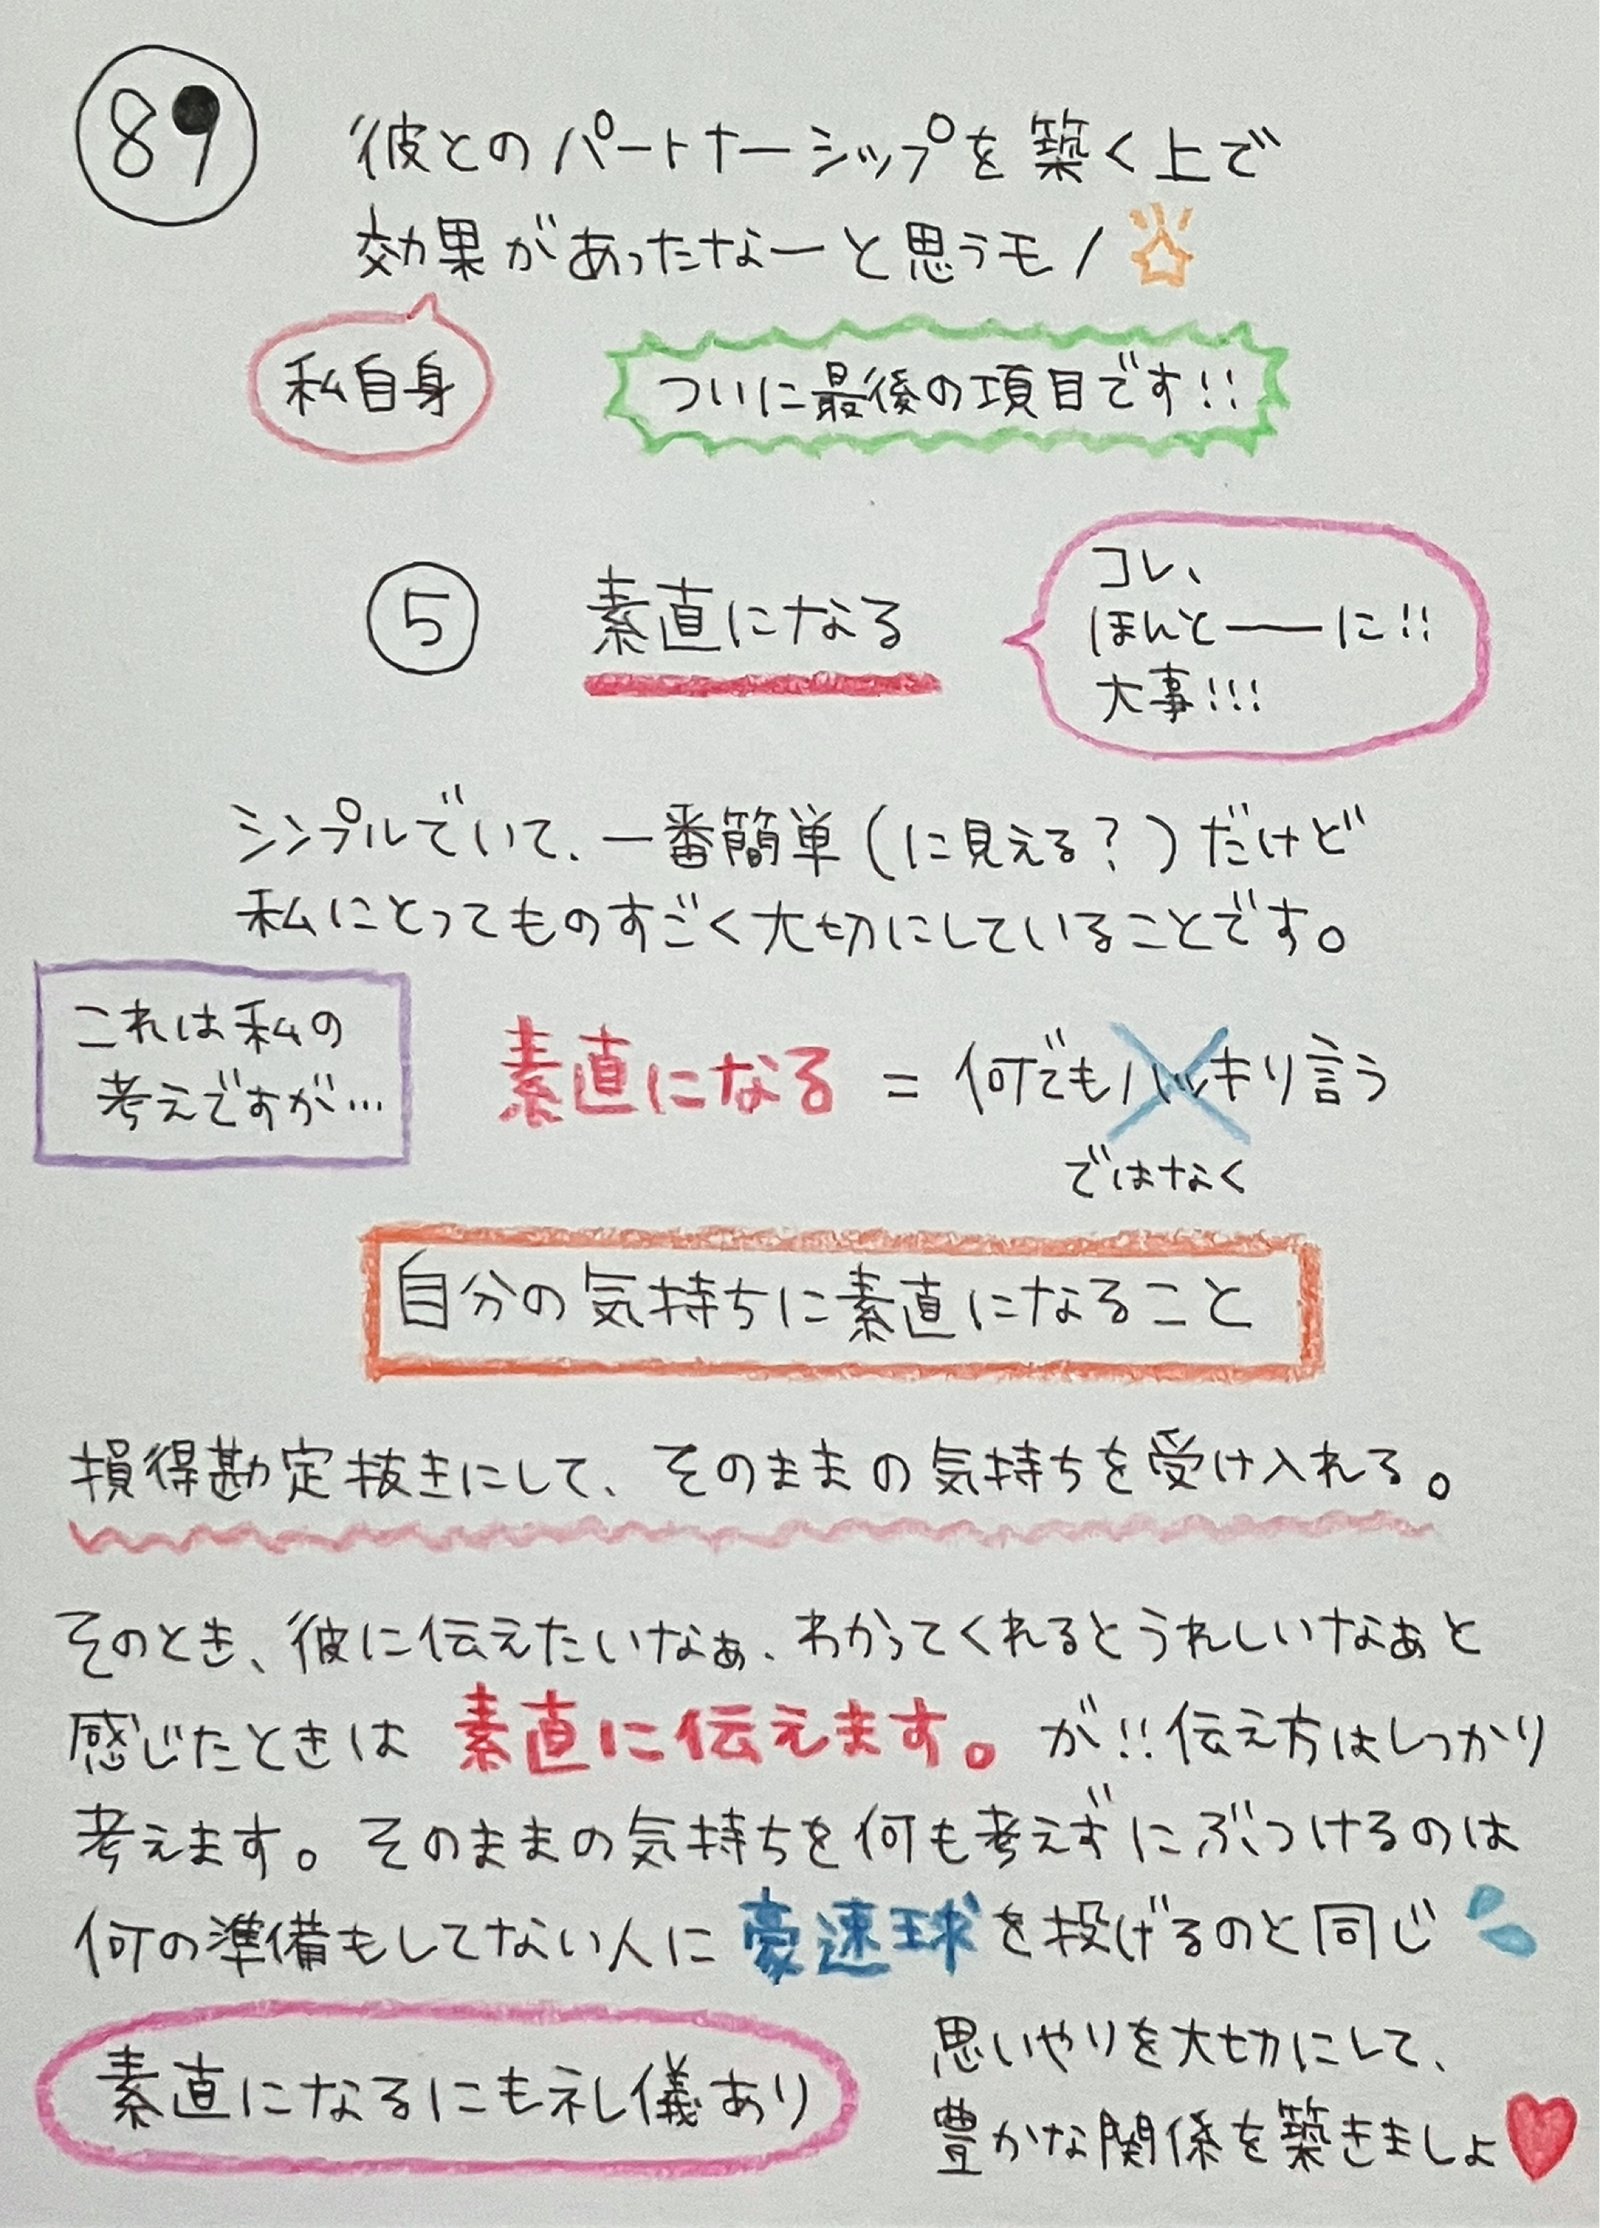 89
彼とのパートナーシップを築く上で
効果があったなーと思うモノ
私自身
ついに最後の項目です!!
⑤ 素直になる
コレ、
ほんとーーに!!
大事!!!
シンプルでいて、一番簡単(に見える?)だけど
私にとってものすごく大切にしていることです。
これは私の
考えですが…
素直になる = 何でもハッキリ言う
ではなく
自分の気持ちに素直になること
損得勘定抜きにして、そのままの気持ちを受け入れる。
そのとき、彼に伝えたいなぁ、わかってくれるとうれしいなぁと
感じたときは 素直に伝えます。が!!伝え方はしっかり
考えます。そのままの気持ちを何も考えずにぶつけるのは
何の準備もしてない人に豪速球を投げるのと同じ
素直になるにも礼儀あり
思いやりを大切にして、
豊かな関係を築きましょ